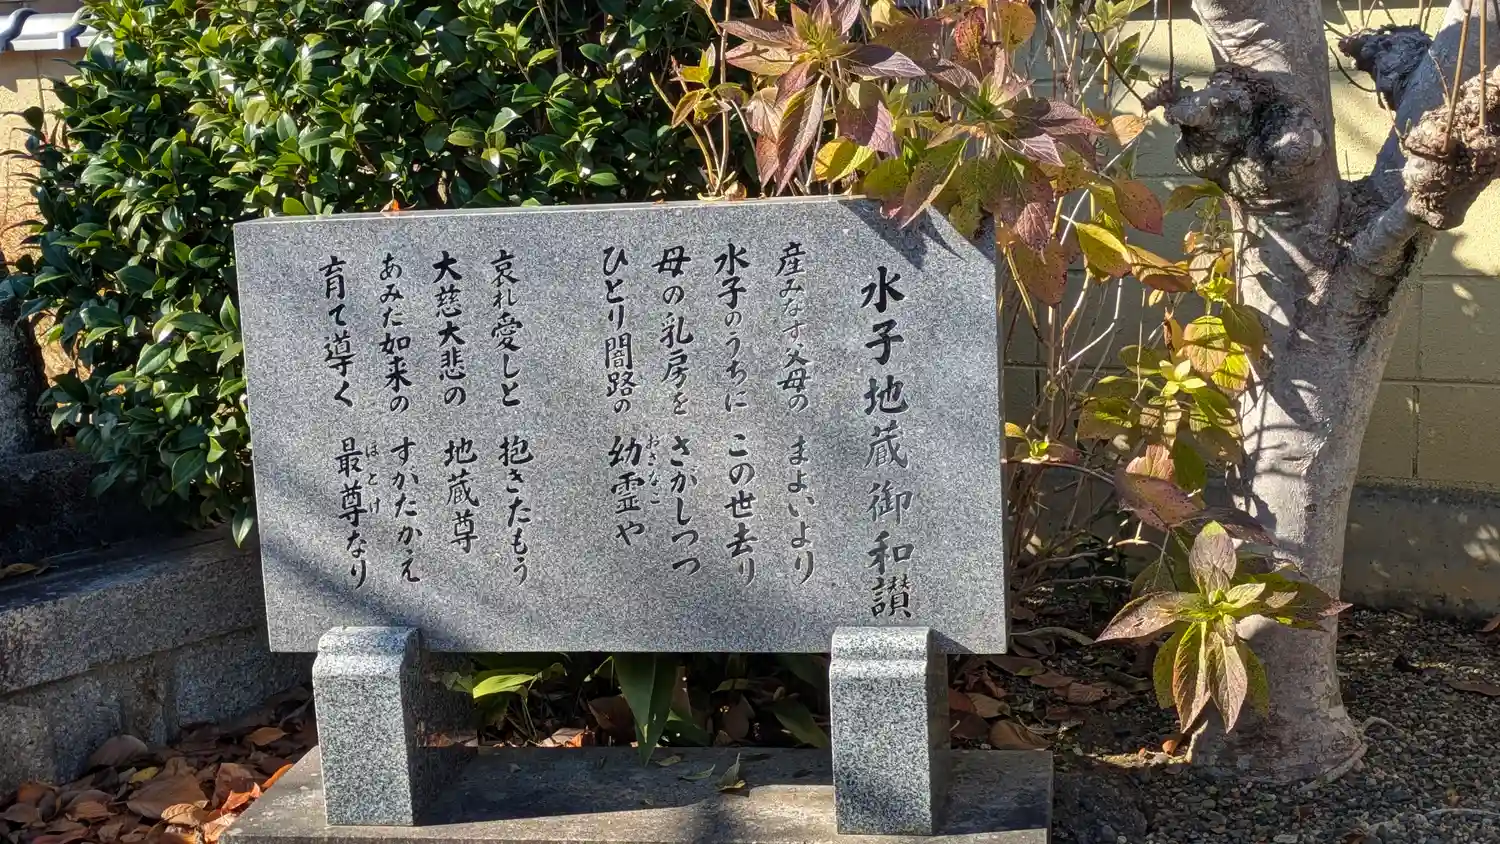 水子地蔵御和讃
産みなす父母の まよいより
水子のうちに この世去り
母の乳房を さがしつつ
ひとり闇路の 幼霊や
おさなこ
哀れ愛しと 抱きたもう
大慈大悲の 地蔵尊
あみだ如来の すかたかえ
育て導く 最尊なり
ほとけ